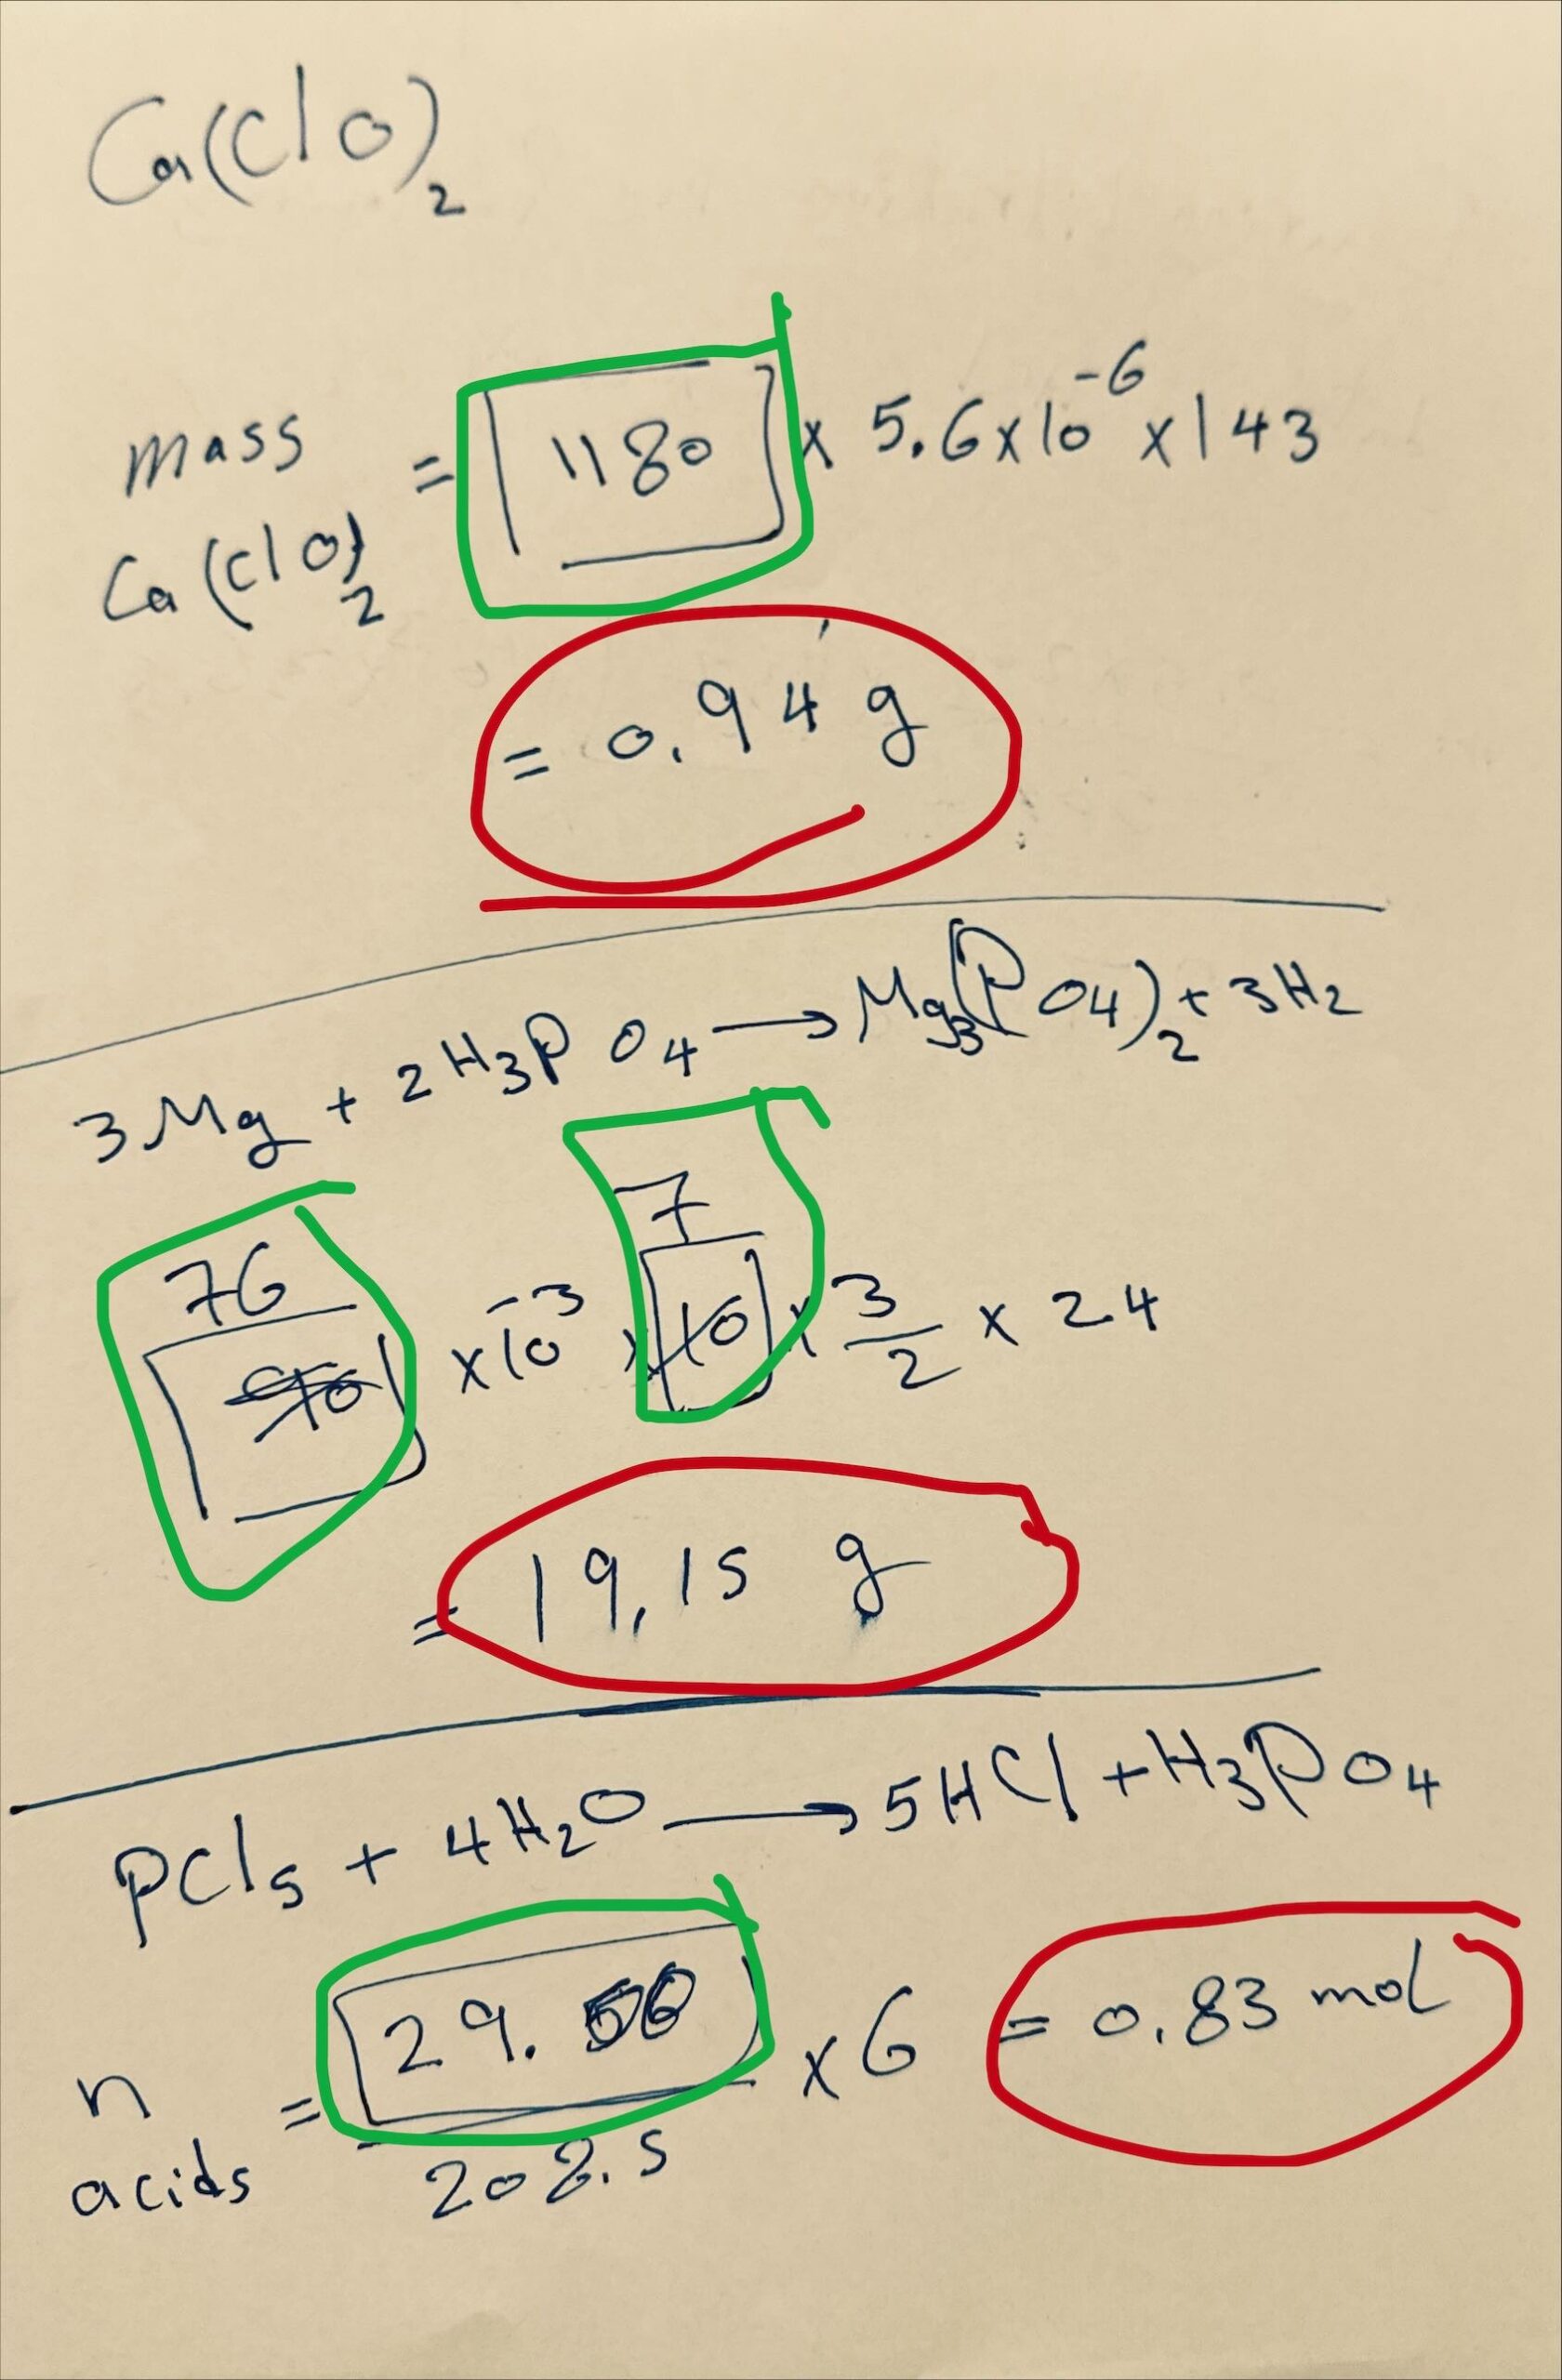 Ca(ClO)₂
mass Ca(ClO)₂ = 1180 x 5.6x10⁻⁶ x 143
= 0.94 g
3Mg + 2H₃PO₄ → Mg₃(PO₄)₂ + 3H₂
76 7
x10⁻³ x 10 x 3/2 x 24
= 19.15 g
PCl₅ + 4H₂O → 5HCl + H₃PO₄
n acids = 29.50 / 208.5 x 6 = 0.83 mol